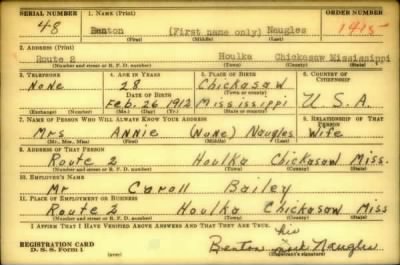 SERIAL NUMBER 1. NAME (Print) ORDER NUMBER
48 Benton (First name only) Naugles 1915
(First) (Middle) (Last)
2. ADDRESS (Print)
Route 2 Houlka Chickasaw Mississippi
(Number and street or R. F. D. number) (Town) (County) (State)
3. TELEPHONE 4. AGE IN YEARS 5. PLACE OF BIRTH 6. COUNTRY OF CITIZENSHIP
None 28 Chickasaw
DATE OF BIRTH (Town or county)
Feb. 26 1912 Mississippi U.S.A.
(Exchange) (Number) (Mo.) (Day) (Yr.) (State or country)
7. NAME OF PERSON WHO WILL ALWAYS KNOW YOUR ADDRESS 8. RELATIONSHIP OF THAT PERSON
Mrs Annie (None) Naugles Wife
(Mr., Mrs., Miss) (First) (Middle) (Last)
9. ADDRESS OF THAT PERSON
Route 2 Houlka Chickasaw Miss.
(Number and street or R. F. D. number) (Town) (County) (State)
10. EMPLOYER'S NAME
Mr Caroll Bailey
11. PLACE OF EMPLOYMENT OR BUSINESS
Route 2 Houlka Chickasaw Miss
(Number and street or R. F. D. number) (Town) (County) (State)
I AFFIRM THAT I HAVE VERIFIED ABOVE ANSWERS AND THAT THEY ARE TRUE.
his
REGISTRATION CARD Benton mark Naugles
D. S. S. Form 1 (over) (Registrant's signature)